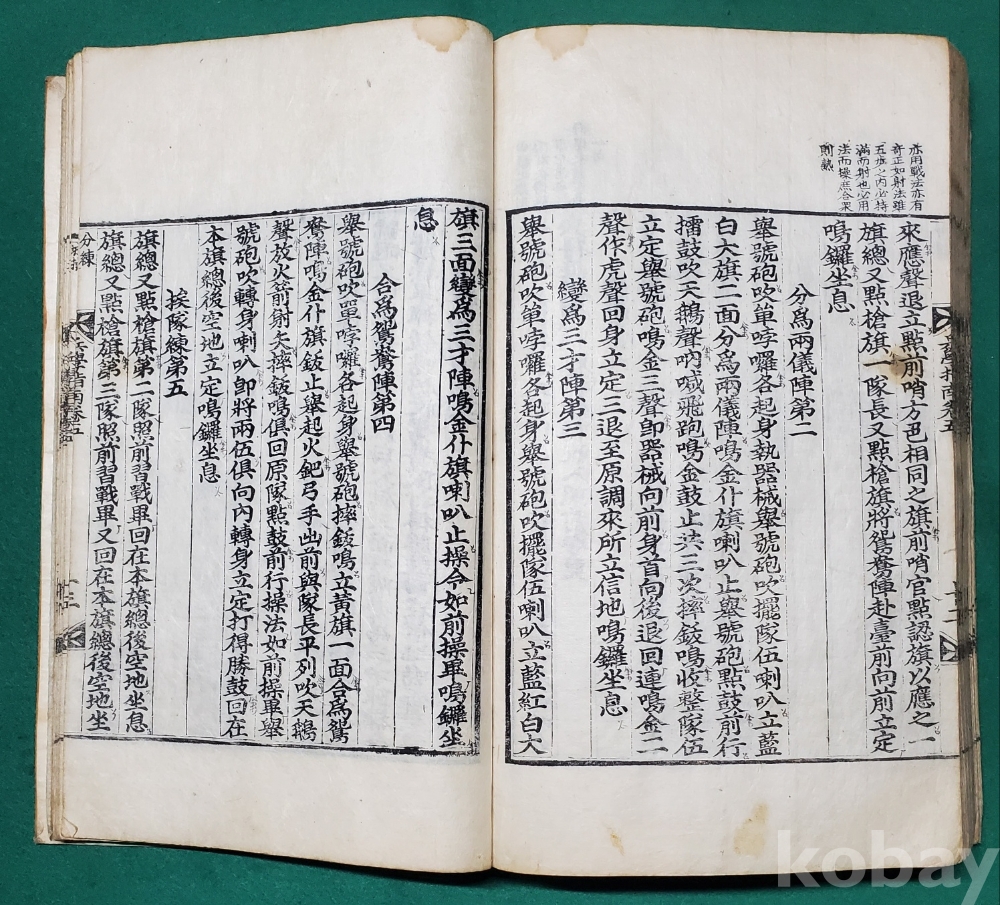 亦用戰法亦有
奇正如射法雖
五歩之内必持
滿而射也必用
法而操庶合衆
則熟
來應聲退立點前哨方色相同之旗前哨官點認旗以應之一
旗總又點槍旗一隊長又點槍旗將鴛鴦陣赴臺前向前立定
鳴鑼坐息
分爲兩儀陣第二
舉號砲吹單哱囉各起身執器械舉號砲吹擺隊伍喇叭立藍
白大旗二面分爲兩儀陣鳴金仆旗喇叭止舉號砲點鼓前行
擂鼓吹天鵝聲吶喊飛跑鳴金鼓止共三次摔鈸鳴收整隊伍
立定舉號砲鳴金三聲卽器械向前身首向後退回連鳴金二
聲作虎聲回身立定三退至原調來所立信地鳴鑼坐息
變爲三才陣第三
舉號砲吹單哱囉各起身舉號砲吹擺隊伍喇叭立藍紅白大
旗三面變爲三才陣鳴金仆旗喇叭止操令如前操畢鳴鑼坐
息
合爲鴛鴦陣第四
舉號砲吹單哱囉各起身舉號砲摔鈸鳴立黃旗一面合爲鴛
鴦陣鳴金仆旗鈸止舉起火鈀弓手出前與隊長平列吹天鵝
聲放火箭射矢摔鈸鳴俱回原隊點鼓前行操法如前操畢舉
號砲吹轉身喇叭卽將兩伍俱向內轉身立定打得勝鼓回在
本旗總後空地立定鳴鑼坐息
挨隊練第五
旗總又點槍旗第二隊照前習戰畢回在本旗總後空地坐息
旗總又點槍旗第三隊照前習戰畢又回在本旗總後空地坐
分練
kobay